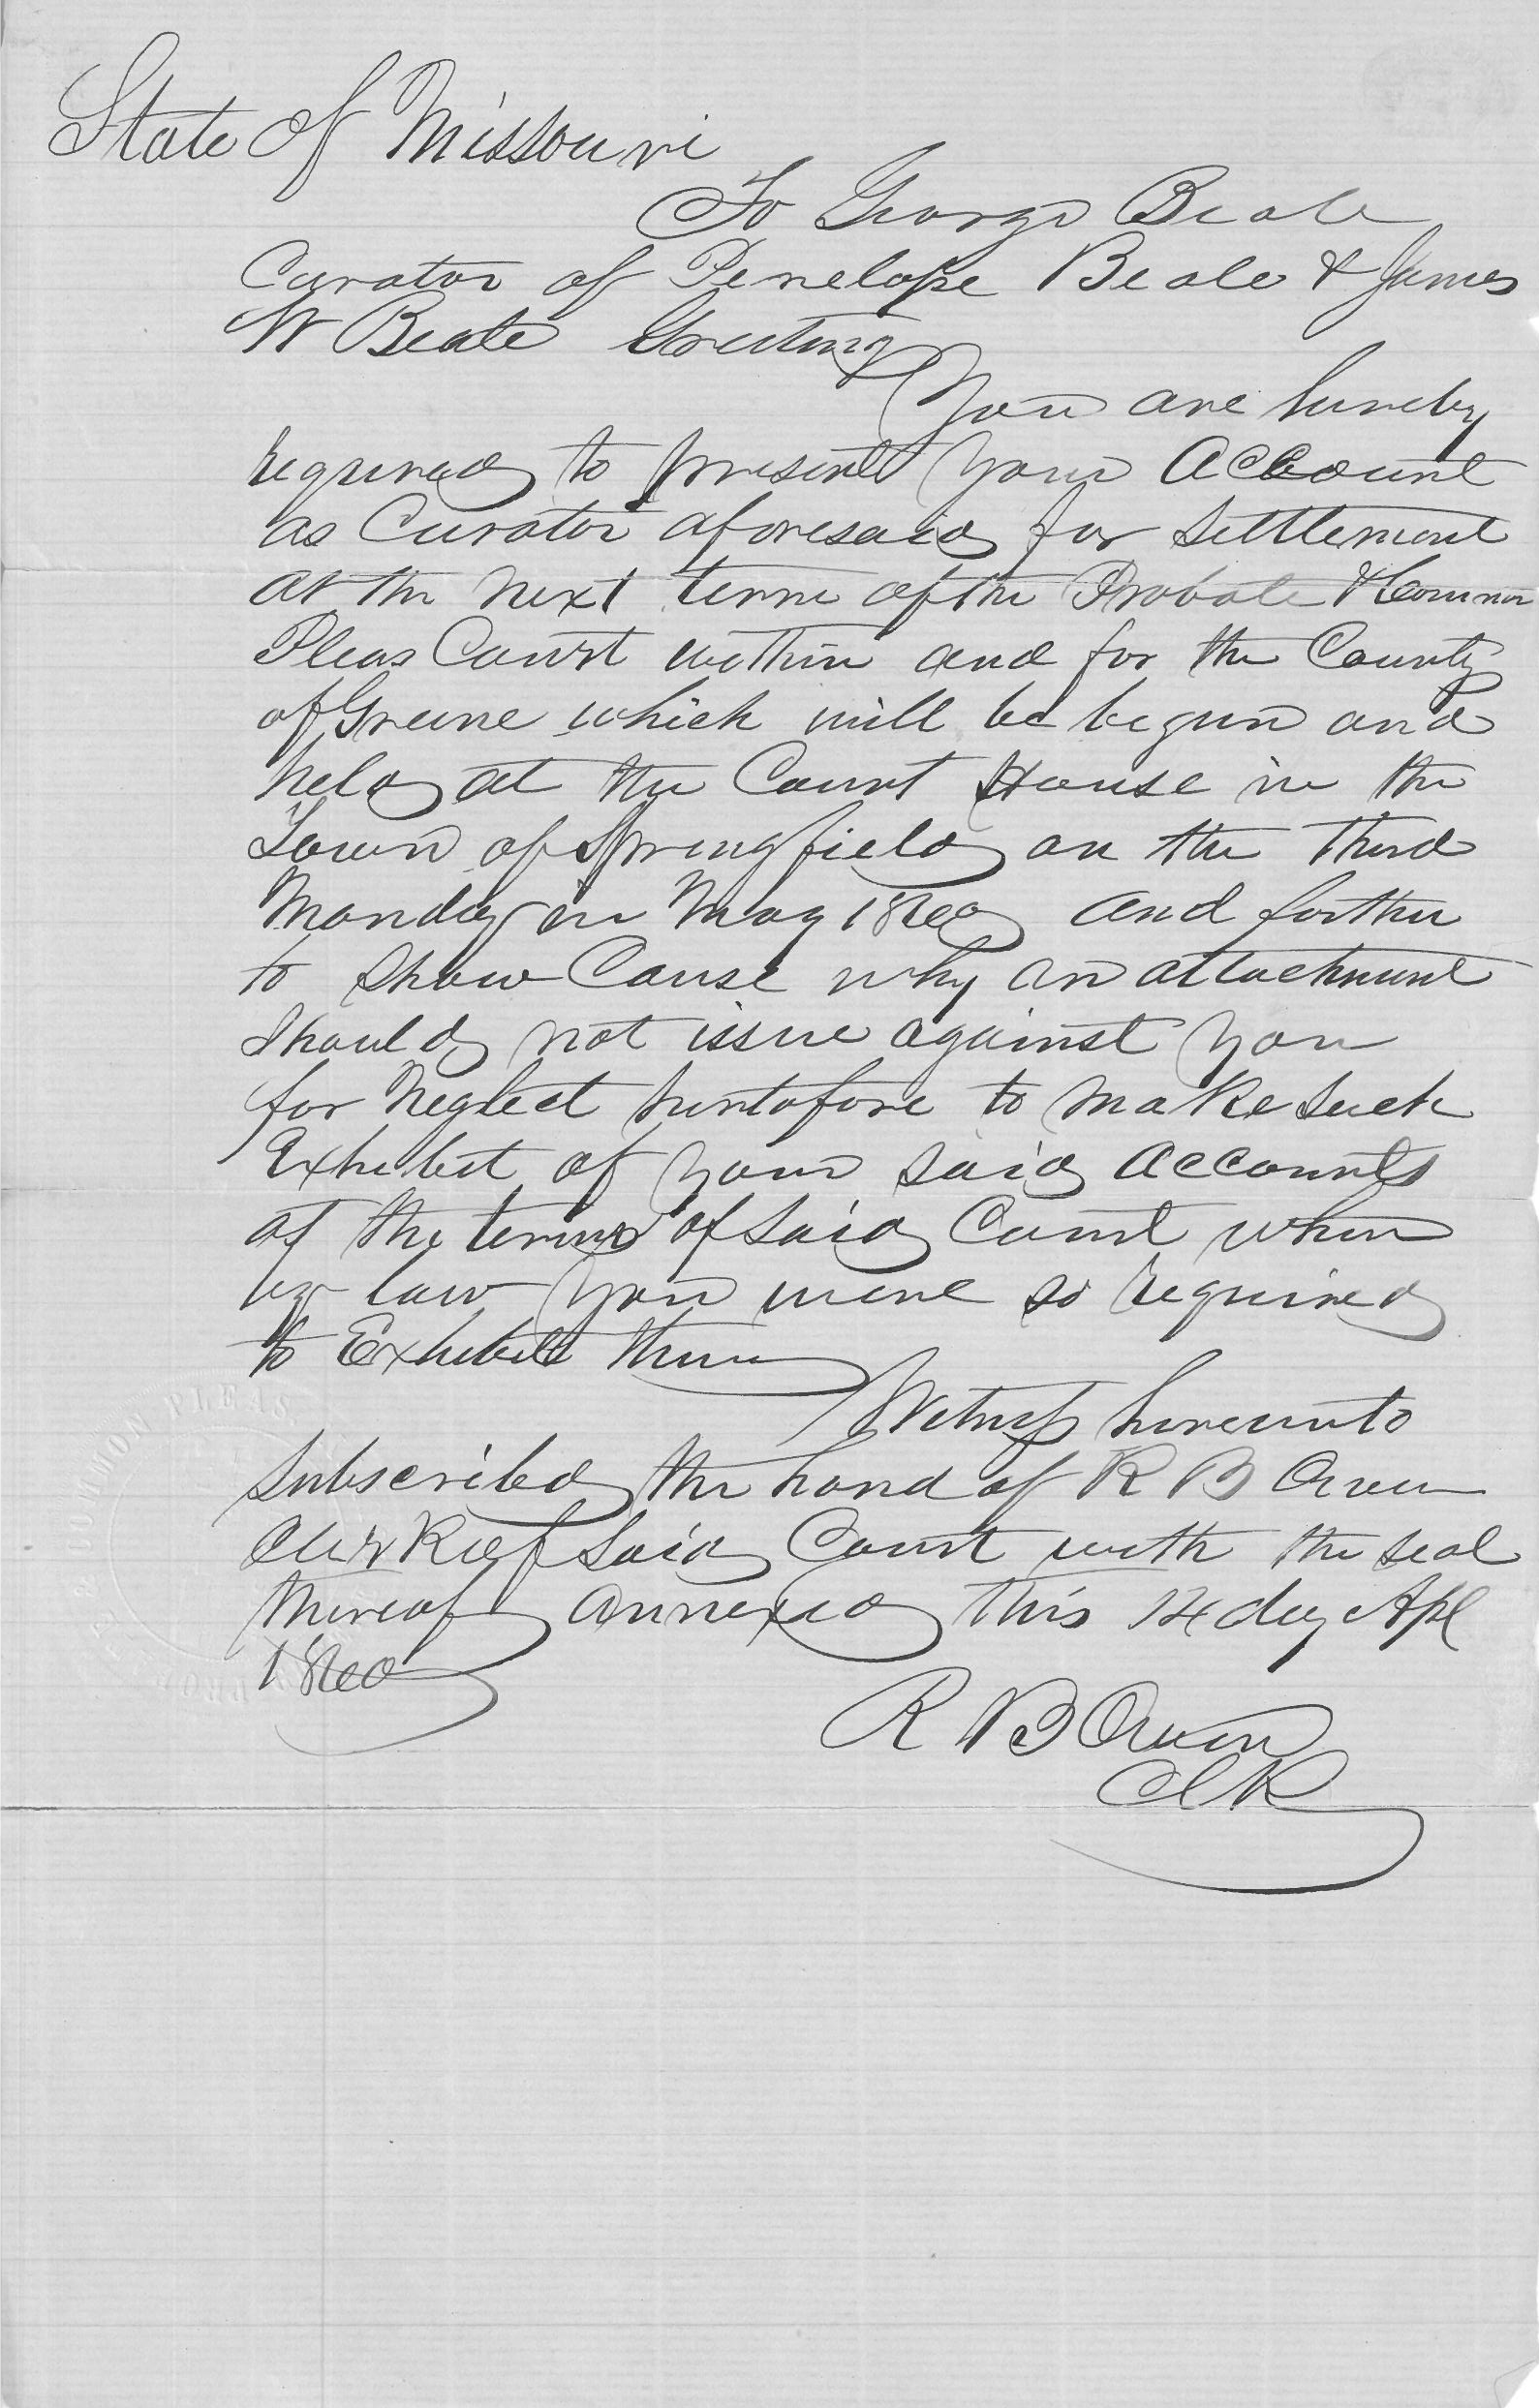 State of Missouri
To George Beale
Curator of Penelope Beale & James
W Beale Greeting
You are hereby
required to present your Account
as Curator aforesaid for settlement
at the next term of the Probate & Common
Pleas Court within and for the County
of Greene which will be begun and
held at the Court House in the
Town of Springfield on the third
Monday in May 1860 and further
to show Cause why an attachment
should not issue against you
for neglect heretofore to make such
Exhibit of your said accounts
at the terms of said Court when
by law you were so required
to Exhibit them
Witness hereunto
subscribed the hand of R B Owen
Clerk of said Court with the seal
thereof annexed this 14 day Apl
1860
R B Owen
Clk
COMMON PLEAS